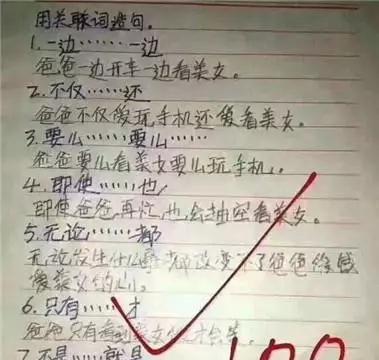 用关联词造句。
1.一边……一边
爸爸一边开车一边看美女。
2.不仅……还
爸爸不仅爱玩手机还爱看美女。
3.要么……要么……
爸爸要么看美女要么玩手机。
4.即使……也
即使爸爸再忙,也会抽空看美女。
5.无论……都
无论发生什么 都改变不了爸爸
爱美女的心。
6.只有……才
爸爸只有看到美女 才会笑。
7.不是……就是
100